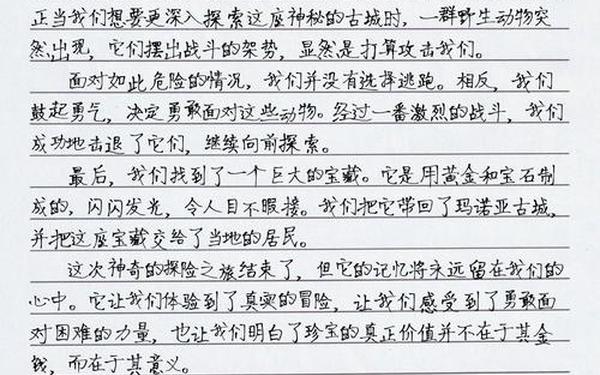 正当我们想要更深入探索这座神秘的古城时，一群野生动物突
然出现，它们摆出战斗的架势，显然是打算攻击我们。
面对如此危险的情况，我们并没有选择逃跑。相反，我们
鼓起勇气，决定勇敢面对这些动物。经过一番激烈的战斗，我们
成功地击退了它们，继续向前探索。
最后，我们找到了一个巨大的宝藏。它是用黄金和宝石制
成的，闪闪发光，令人目不暇接。我们把它带回了玛诺亚古城，
并把这座宝藏交给了当地的居民。
这次神奇的探险之旅结束了，但它的记忆将永远留在我们的
心中。它让我们体验到了真实的冒险，让我们感受到了勇敢面
对困难的力量，也让我们明白了珍宝的真正价值并不在于其金
钱，而在于其意义。